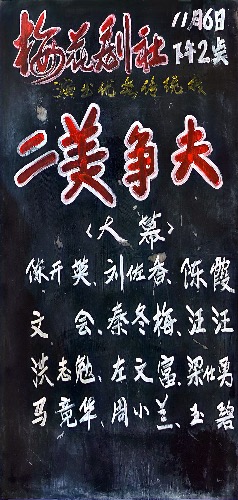 梅花剧社
11月6日
下午2点
演出优秀传统戏
二美争夫
〈大幕〉
陈开英、刘佐春、陈霞
文会、秦冬梅、汪汪
洪志勉、左文富、梁仕勇
马竞华、周小兰、玉碧